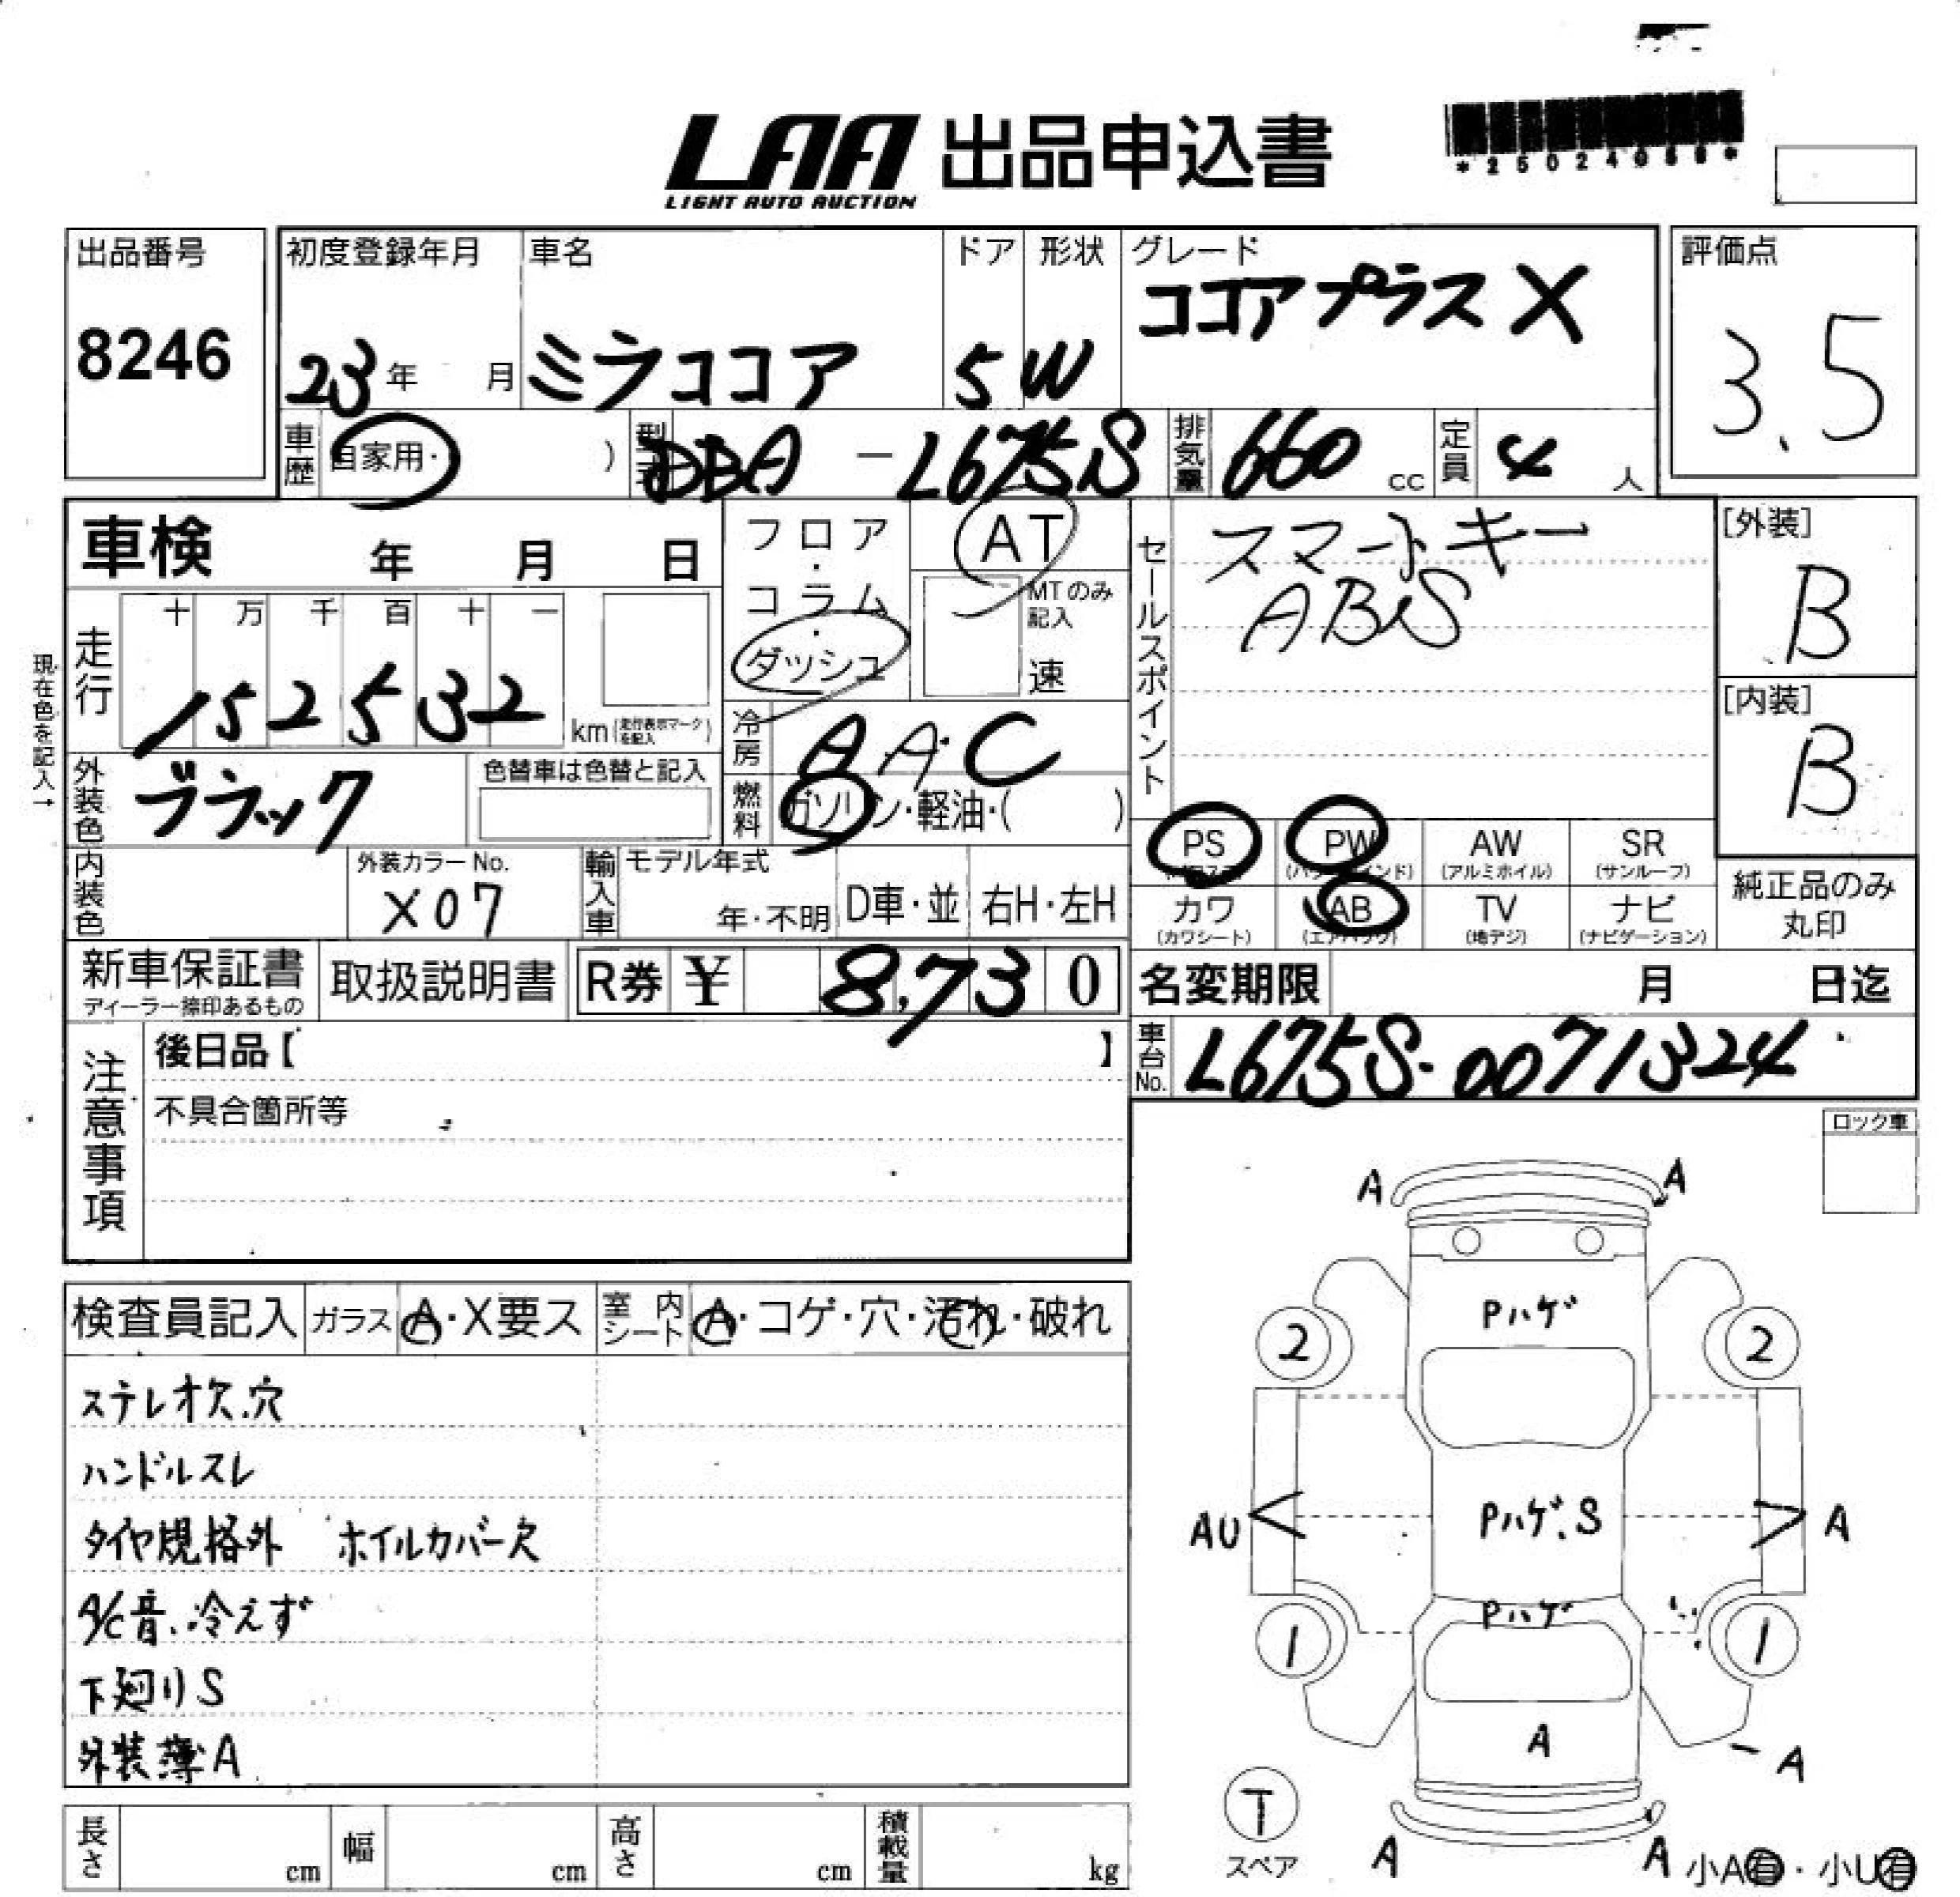 LAA 出品申込書
LIGHT AUTO AUCTION
*25024056*
出品番号
8246
初度登録年月
23年 月
車名
ミラココア
ドア
5
形状
W
グレード
ココアプラスX
評価点
3.5
車歴
自家用・ )
型式
DBA - L675S
排気量
660 cc
定員
4 人
車検 年 月 日
フロア・コラム・ダッシュ
AT
MTのみ記入
速
セールスポイント
スマートキー
ABS
[外装]
B
[内装]
B
現在色を記入→
走行
十 万 千 百 十 一
152532
km(走行表示マークを記入)
冷房
AAC
燃料
ガソリン・軽油・( )
外装色
ブラック
色替車は色替と記入
内装色
外装カラーNo.
X07
輸入車
モデル年式
年・不明
D車・並
右H・左H
PS
PW
AW
(アルミホイル)
SR
(サンルーフ)
カワ
(カワシート)
AB
(エアバッグ)
TV
(地デジ)
ナビ
(ナビゲーション)
純正品のみ
丸印
新車保証書
ディーラー捺印あるもの
取扱説明書
R券 ¥ 8,730
名変期限 月 日迄
車台No.
L675S-0071324
注意事項
後日品【 】
不具合箇所等
ロック車
検査員記入
ガラス A・X要ス
室内シート A・コゲ・穴・汚れ・破れ
ステレオ欠.穴
ハンドルスレ
タイヤ規格外 ホイルカバー欠
A/C音.冷えず
下廻りS
外装薄A
A A
Pハゲ
2 2
AU Pハゲ.S A
Pハゲ
1 1
A
A
T
スペア
A A
小A有・小U有
長さ cm
幅 cm
高さ cm
積載量 kg